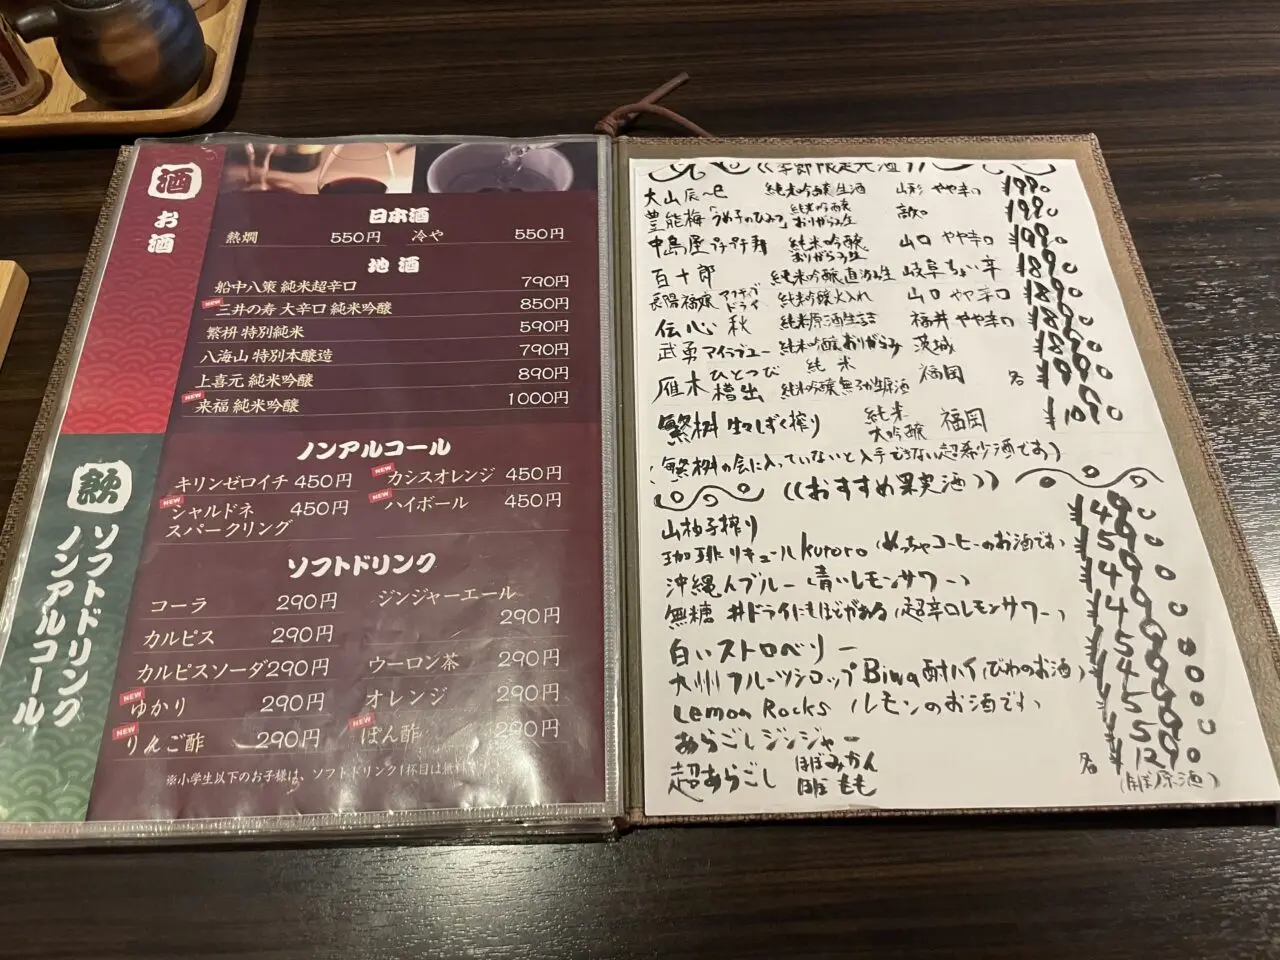 酒
お酒
日本酒
熱燗 550円 冷や 550円
地酒
船中八策 純米超辛口 790円
NEW 三井の寿 大辛口 純米吟醸 850円
繁枡 特別純米 590円
八海山 特別本醸造 790円
上喜元 純米吟醸 890円
NEW 来福 純米吟醸 1000円
飲
ソフトドリンク
ノンアルコール
ノンアルコール
キリンゼロイチ 450円 NEW カシスオレンジ 450円
NEW シャルドネ 450円 NEW ハイボール 450円
スパークリング
ソフトドリンク
コーラ 290円 ジンジャーエール
カルピス 290円 290円
カルピスソーダ 290円 ウーロン茶 290円
NEW ゆかり 290円 オレンジ 290円
NEW りんご酢 290円 NEW ぽん酢 290円
※小学生以下のお子様は、ソフトドリンク1杯目は無料
((季節限定地酒))
大山 純米吟醸生酒 山形 やや辛口
豊能梅「うめ子のひみつ」 純米吟醸 おりがらみ生
中島屋 プチプチ寿 純米吟醸 おりがらみ生 山口 やや辛口
百十郎 純米吟醸直汲み生 岐阜 ちょい辛
長陽福娘 アクティブドライ 純米吟醸火入れ 山口 やや辛口
伝心 秋 純米原酒生詰 福井 やや辛口
武勇 アイラブユー 純米吟醸おりがらみ 茨城
雁木 ひとつび 純米
槽出 純米吟醸無ろか生原酒 福岡 各
繁枡 生々しずく搾り 純米大吟醸 福岡
(繁枡の会に入っていないと入手できない超希少酒です)
((おすすめ果実酒))
山柚子搾り
珈琲リキュール kutoro (めっちゃコーヒーのお酒です)
沖縄人ブルー (青いレモンサワー)
無糖 #ドライにもほどがある (超辛口レモンサワー)
白いストロベリー
九州フルーツシロップ Biwa酎ハイ (びわのお酒)
Lemon Rocks (レモンのお酒です)
あらごしジンジャー
超あらごし ほぼみかん
ほぼもも 各
(ほぼ原酒)